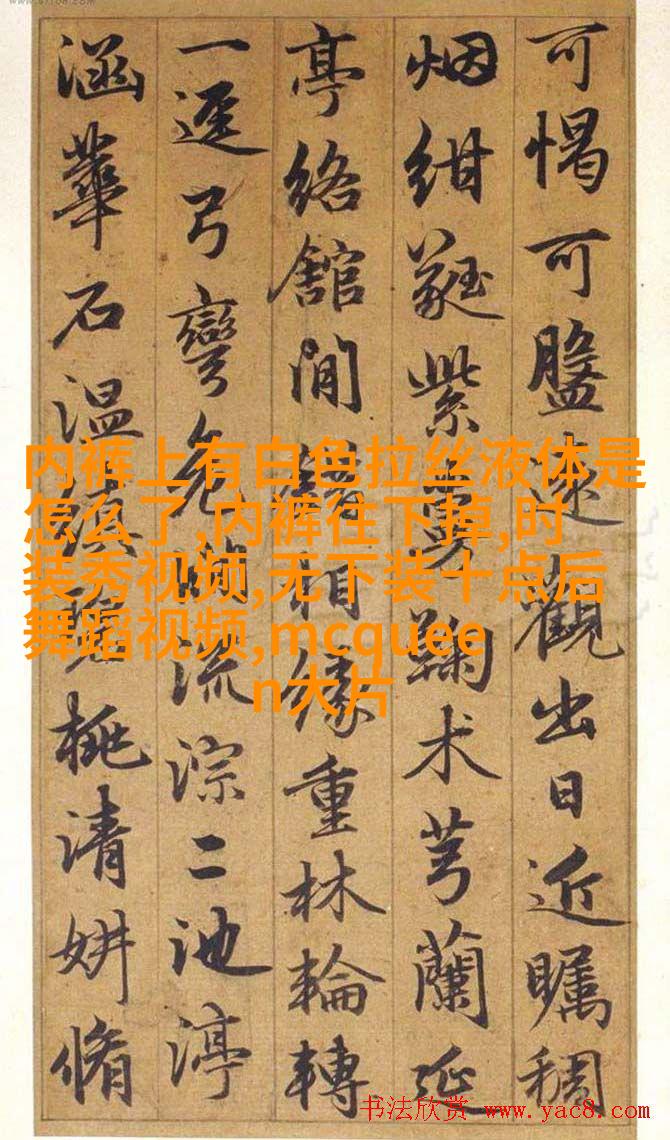 可愒可盤遠觀出日近矚稠
烟紺蕤紫術芎蘭延
亭絡館閒相緣重林輪轉
一逕弓彎危流淙二池渟
涵華石温桃清妍脩
内裤上有白色拉丝液体是
怎么了,内裤往下掉,时
装秀视频,无下装十点后
舞蹈视频,mcquee
n大片
书法欣赏 www.yac8.com